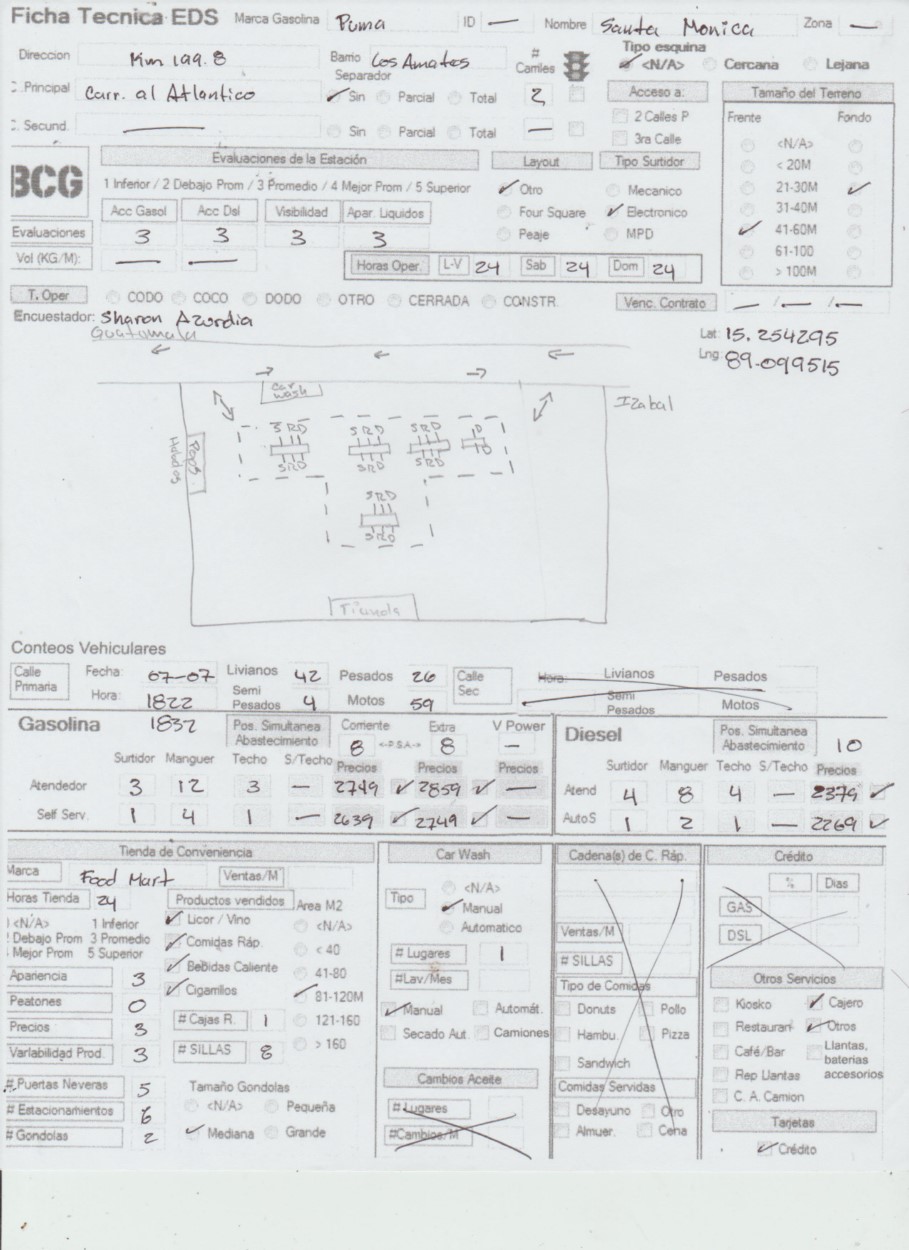 Ficha Tecnica EDS Marca Gasolina Puma ID — Nombre Santa Monica Zona —
Direccion Km 199.8 Barrio Los Amates # Carriles Tipo esquina <N/A> Cercana Lejana
Separador
C. Principal Carr. al Atlantico Sin Parcial Total 2 Acceso a: Tamaño del Terreno
C. Secund. — Sin Parcial Total — 2 Calles P Frente Fondo
3ra Calle <N/A>
BCG Evaluaciones de la Estación Layout Tipo Surtidor < 20M
1 Inferior / 2 Debajo Prom / 3 Promedio / 4 Mejor Prom / 5 Superior Otro Mecanico 21-30M
Acc Gasol Acc Dsl Visibilidad Apar. Liquidos Four Square Electronico 31-40M
Evaluaciones 3 3 3 3 Peaje MPD 41-60M
Vol (KG/M): — — Horas Oper. L-V 24 Sab 24 Dom 24 61-100
> 100M
T. Oper CODO COCO DODO OTRO CERRADA CONSTR. Venc. Contrato — /— /—
Encuestador: Sharon Azurdia
Guatemala Lat: 15.254295
Lng: 89.099515
Car wash
Izabal
SRD SRD SRD D
SRD SRD SRD D
Helados
SRD
SRD
Tienda
Conteos Vehiculares
Calle Primaria Fecha: 07-07 Livianos 42 Pesados 26 Calle Sec Hora: Livianos Pesados
Hora: 1822 Semi Pesados 4 Motos 59 Semi Pesados Motos
Gasolina 1832 Pos. Simultanea Abastecimiento Corriente 8 <-P.S.A.-> Extra 8 V Power — Diesel Pos. Simultanea Abastecimiento 10
Surtidor Manguer Techo S/Techo Precios Precios Precios Surtidor Manguer Techo S/Techo Precios
Atendedor 3 12 3 — 2749 2859 — Atend 4 8 4 — 2379
Self Serv. 1 4 1 — 2639 2749 — Auto S 1 2 1 — 2269
Tienda de Conveniencia Car Wash Cadena(s) de C. Ráp. Crédito
Marca Food Mart Ventas/M
Horas Tienda 24 Productos vendidos Area M2
<N/A> 1 Inferior
2 Debajo Prom 3 Promedio
4 Mejor Prom 5 Superior
Licor / Vino
Comidas Ráp.
Bebidas Caliente
Cigarrillos
<N/A>
< 40
41-80
81-120M
121-160
> 160
Apariencia 3
Peatones 0
Precios 3
Variabilidad Prod. 3
# Cajas R. 1
# SILLAS 8
# Puertas Neveras 5
# Estacionamientos 6
# Gondolas 2
Tamaño Gondolas
<N/A> Pequeña
Mediana Grande
Tipo <N/A>
Manual
Automatico
# Lugares 1
#Lav/Mes
Manual Automát.
Secado Aut. Camiones
Cambios Aceite
# Lugares
#Cambios/M
Ventas/M
# SILLAS
Tipo de Comidas
Donuts Pollo
Hambu. Pizza
Sandwich
Comidas Servidas
Desayuno Otro
Almuer. Cena
% Dias
GAS
DSL
Otros Servicios
Kiosko Cajero
Restauran Otros
Café/Bar Llantas, baterias accesorios
Rep Llantas
C. A. Camion
Tarjetas
Crédito